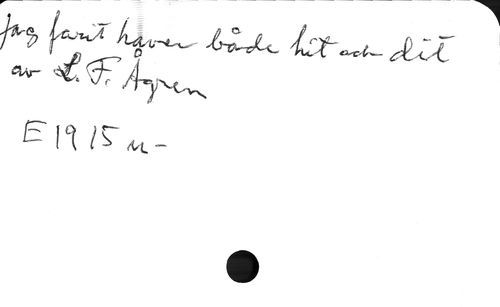 Jag farit haver både hit och dit
av L. F. Ågren
E 1915 u-